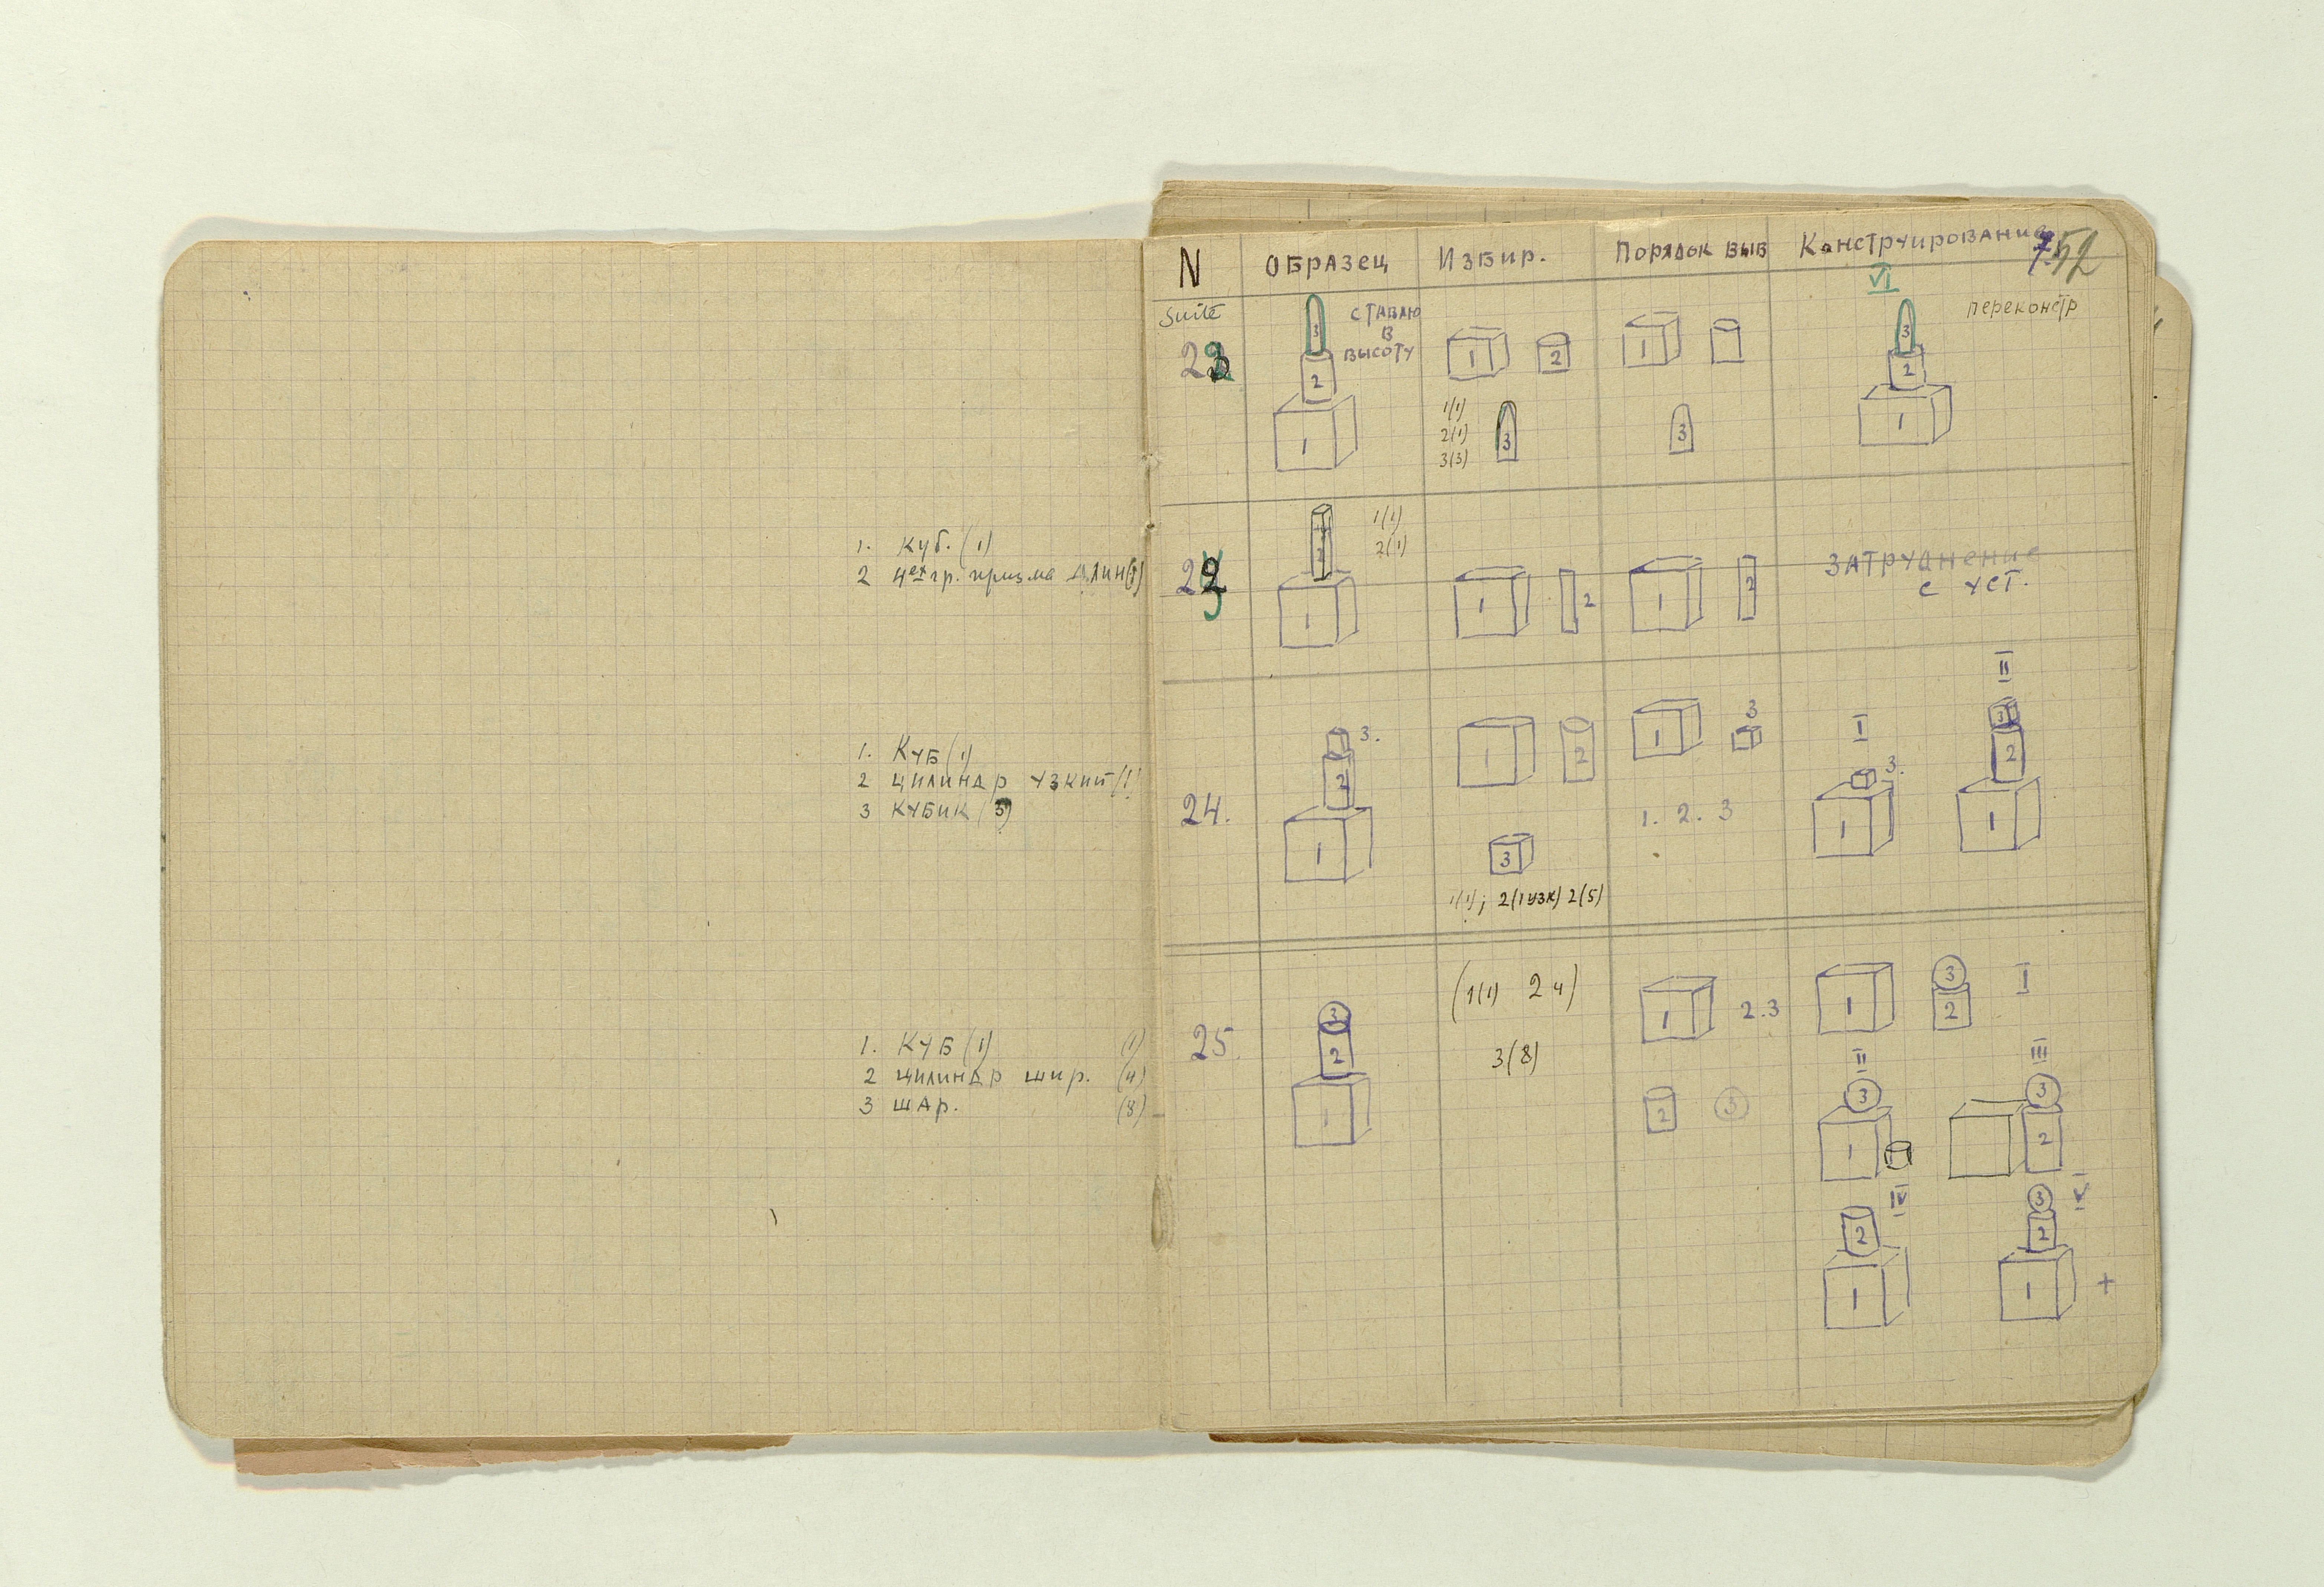 1. Куб. (1)
2 4ех гр. призма длин
1. КУБ (1)
2 цилиндр узкий
3 КУБИК (5)
1. КУБ (1) (1)
2 цилиндр шир. (4)
3 шар. (8)
N Образец Избир. Порядок выв Конструирование
52
Suite
VI
3
ставлю
в
высоту
переконстр
2
1
1 2
1(1)
2(1)
3(3)
3
1
3
3
2
1
1(1)
2(1)
2
1
1 2
1 2
затруднение
с уст.
24.
3.
2
1
1 2
3
1(1); 2(1узк) 2(5)
1 3
1. 2. 3
I
3.
1
II
3
2
1
25.
3
2
1
(1(1) 2 4)
3(8)
1 2.3
2 3
1
3
2
I
II
3
1
III
3
2
IV
2
1
V
3
2
1
+